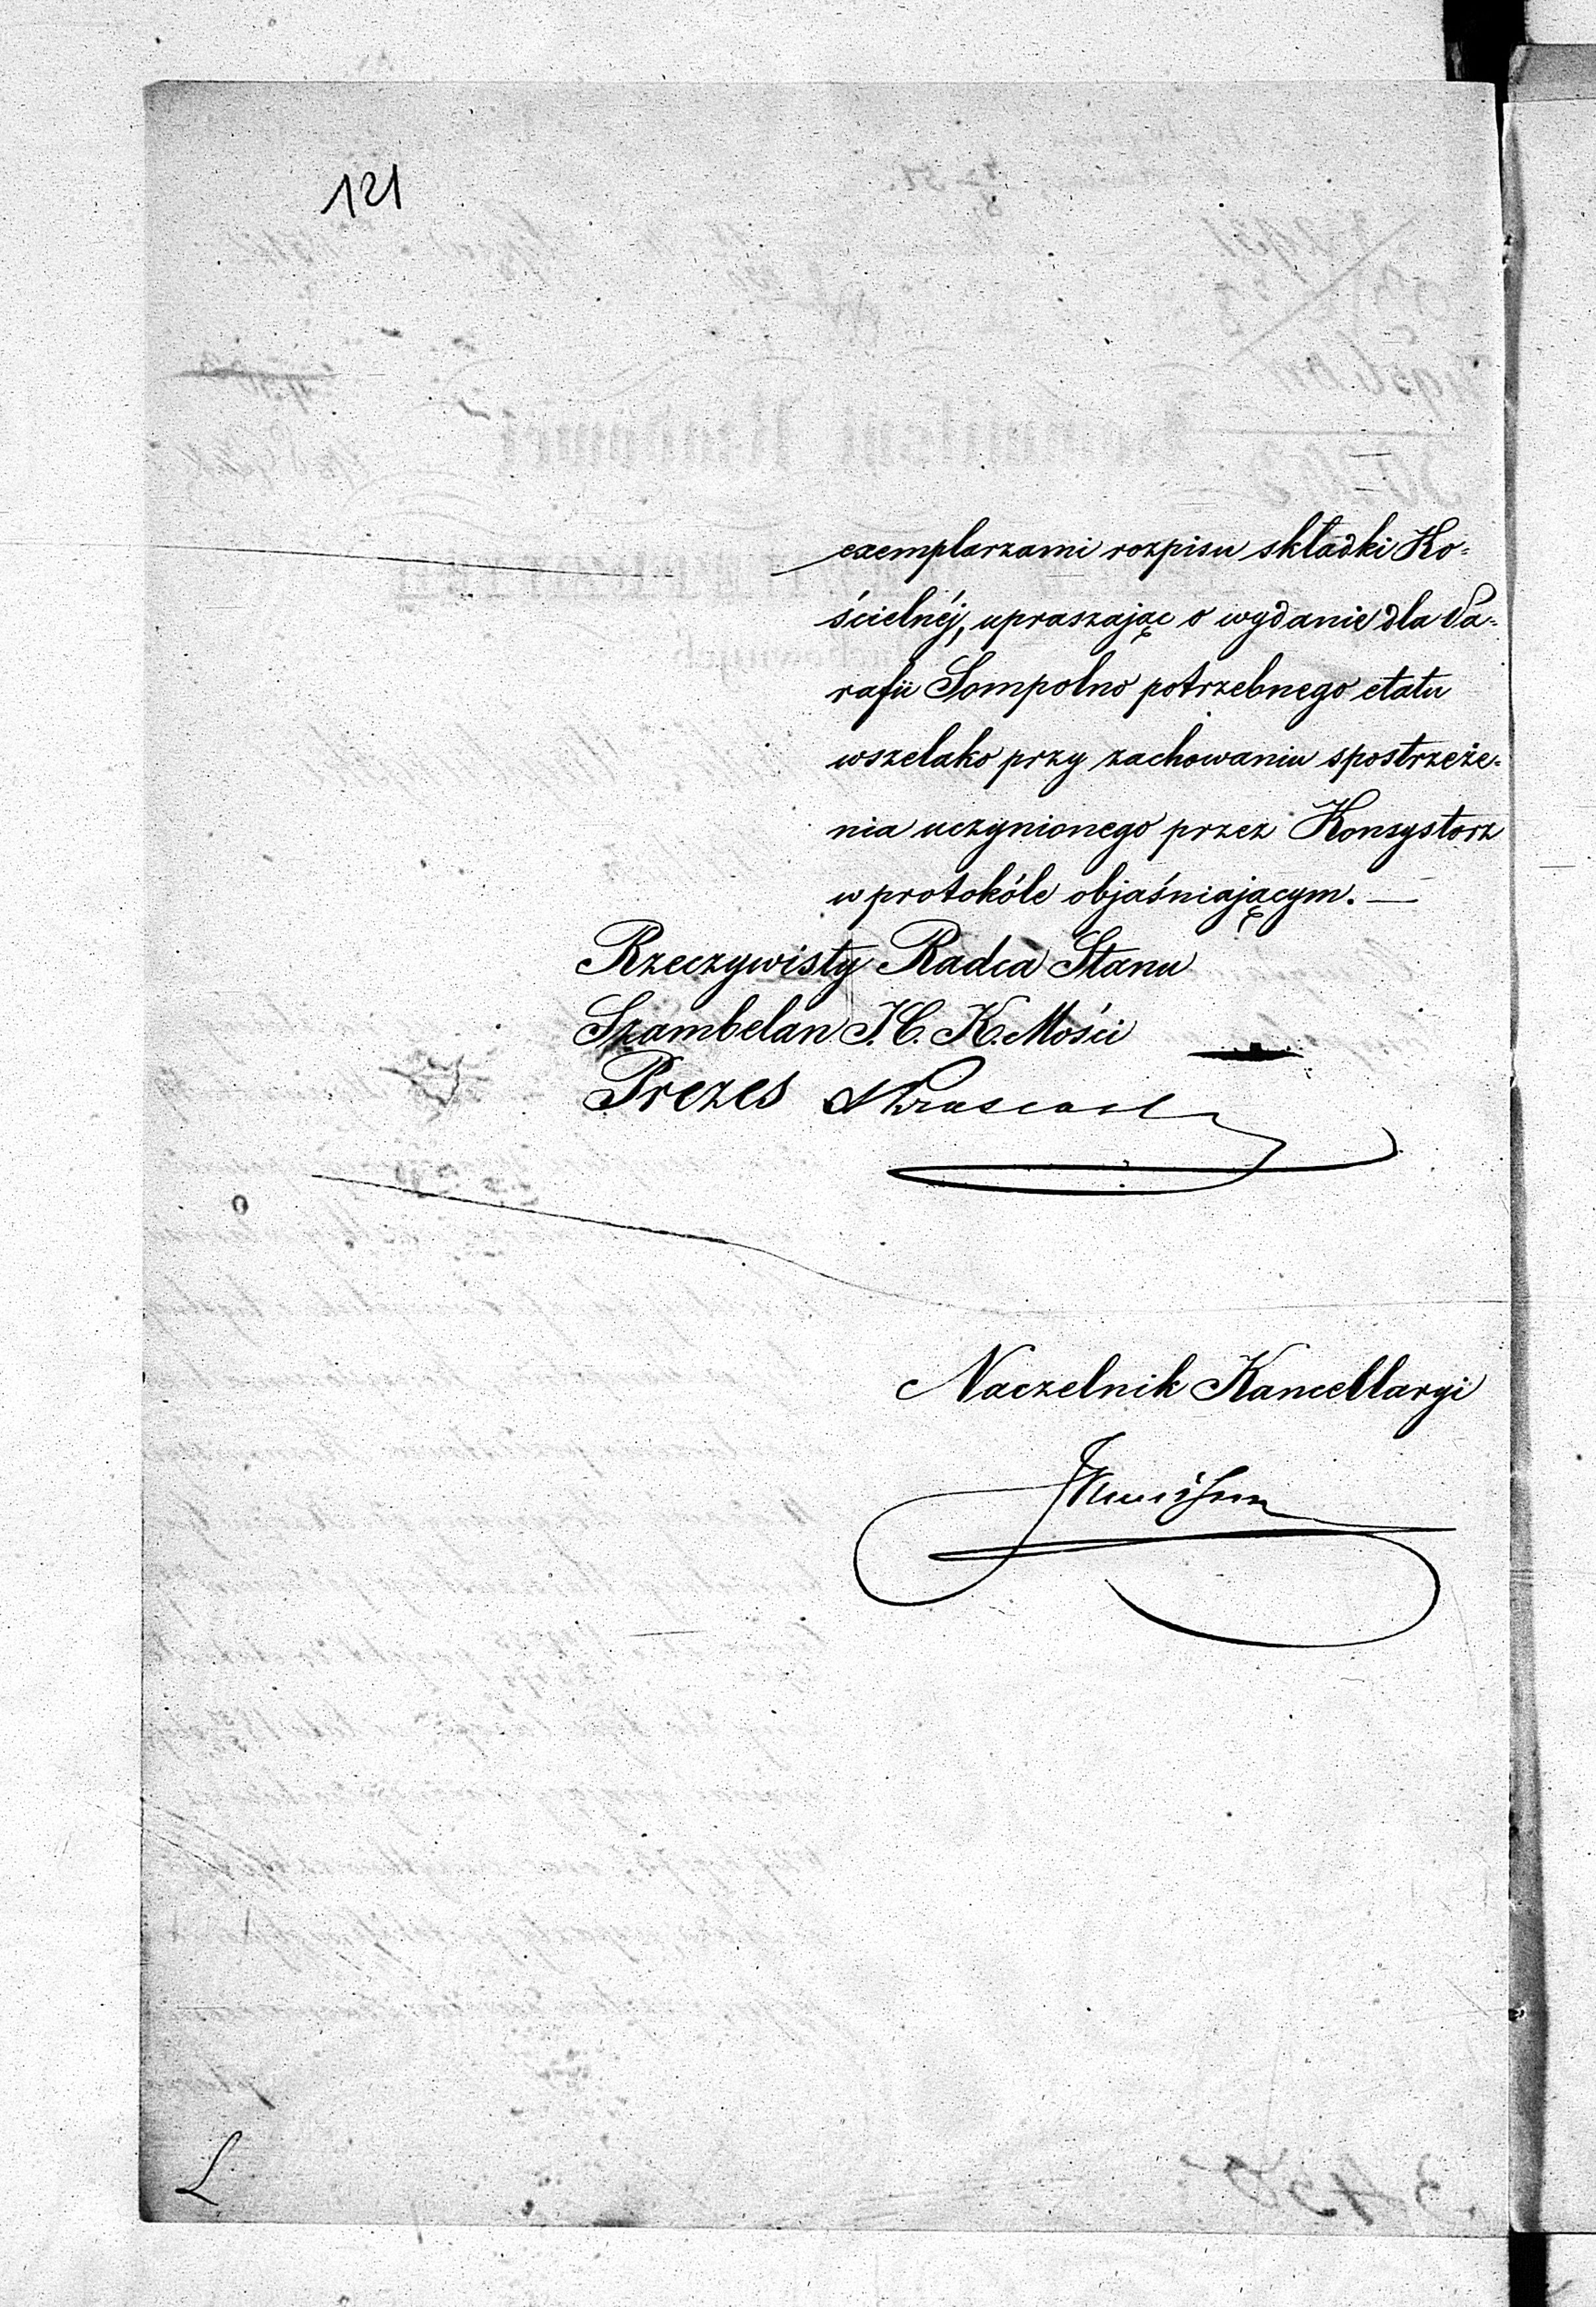 121
exemplarzami rozpisu składki Ko=
ścielnéj, upraszając o wydanie dla Pa=
rafii Sompolno potrzebnego etatu
wszelako przy zachowaniu spostrzeże=
nia uczynionego przez Konsystorz
w protokóle objaśniającym. —
Rzeczywisty Radca Stanu
Szambelan J. C. K. Mości
Prezes
Naczelnik Kancellaryi
L